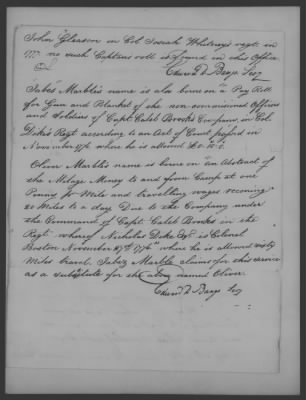 John Gleason in Col Josiah Whitney's regt. in
1777. no such Captains roll is found in this Office
Edward D Bangs Secy
Jabez Marble's name is also borne on a Pay Roll
for Gun and Blanket of the non-commissioned Officers
and Soldiers of Capt. Caleb Brooks Company, in Col.
Dike's Regt according to an Act of Court passed in
November 1776 where he is allowed
Oliver Marble's name is borne on an Abstract of
the Milage Money to and from Camp at one
Penny pr Mile and travelling wages reconing
20 Miles to a day Due to the Company under
the Command of Capt. Caleb Brooks in the
Regt whereof Nicholas Dike Esqr is Colonel
Boston November 27th 1776 where he is allowed sixty
Miles travel. Jabez Marble claims for this service
as a substitute for the above named Oliver.
Edward D Bangs Secy